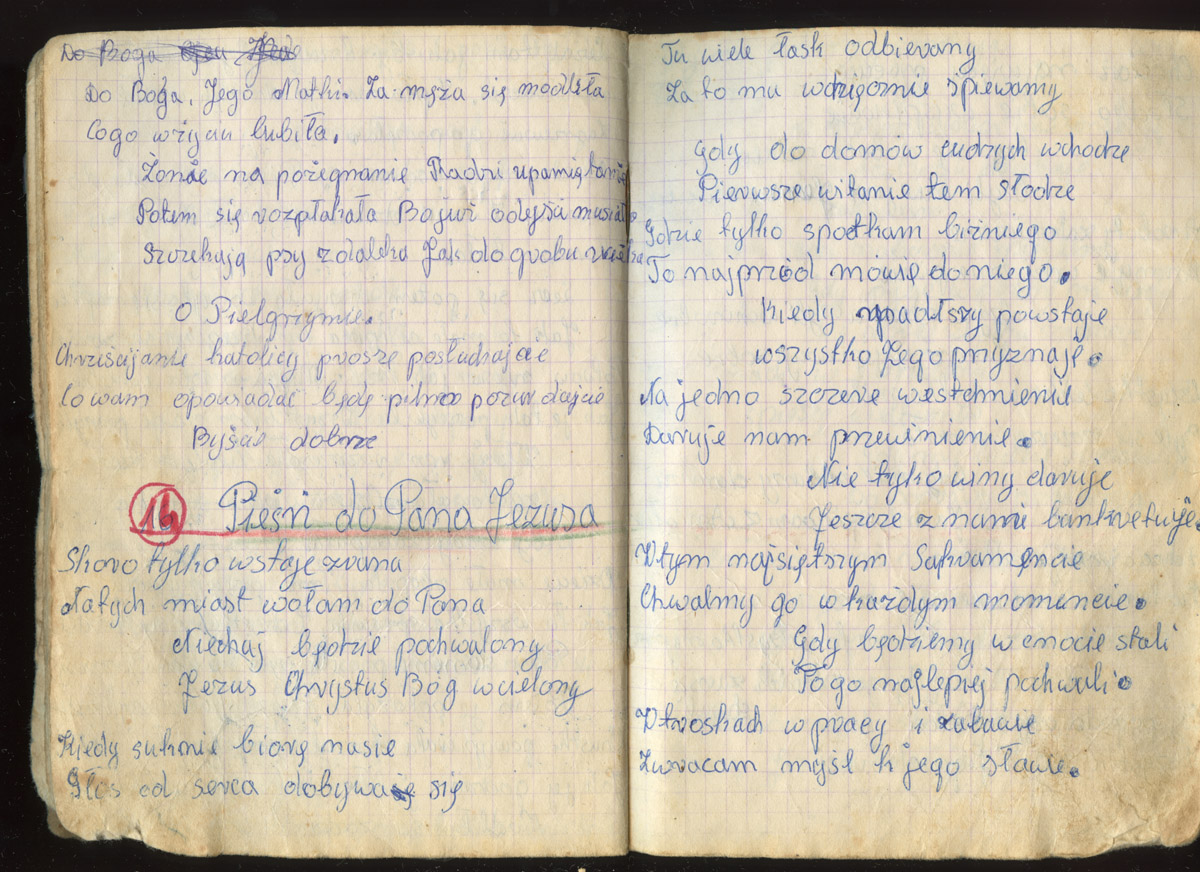 Do Boga
Do Boga. Jego Matki. Za męża się modliła
Cogo wżyciu lubiła.
Żonae na pożegnanie Radzi upamiętanie
Potem się rozpłakała Bojuż odejść musiała
Szczekają psy zdaleka Jak do grobu
O Pielgrzymie.
Chrześcijanie katolicy proszę posłuchajcie
Co wam opowiadać będę pilno pozwidajcie
Byście dobrze
14 Pieśń do Pana Jezusa
Skoro tylko wstaję zrana
Natych miast wołam do Pana
Niechaj będzie pochwalony
Jezus Chrystus Bóg wcielony
Kiedy suknie biorę nasie
Głos od serca dobywa się
Tu wiele łask odbieramy
Za to mu wdzięcznie śpiewamy
Gdy do domów cudzych wchodze
Pierwsze witanie tem słodze
Gdzie tylko spotkam bliźniego
To najprzód mówię doniego.
Kiedy upadłszy powstaje
wszystko Jego przyznaję.
Na jedno szczere westchnienie
Daruje nam przewinienie.
Nie tylko winy daruje
Jeszcze z nami bankietuje.
Wtym najsiętrzym Sakramęncie
Chwalmy go wkażdym momencie.
Gdy będziemy wcnocie stali
Togo najlepiej pochwali.
Wtroskach wpracy i zabawie
Zwracam myśl k jego sławie.